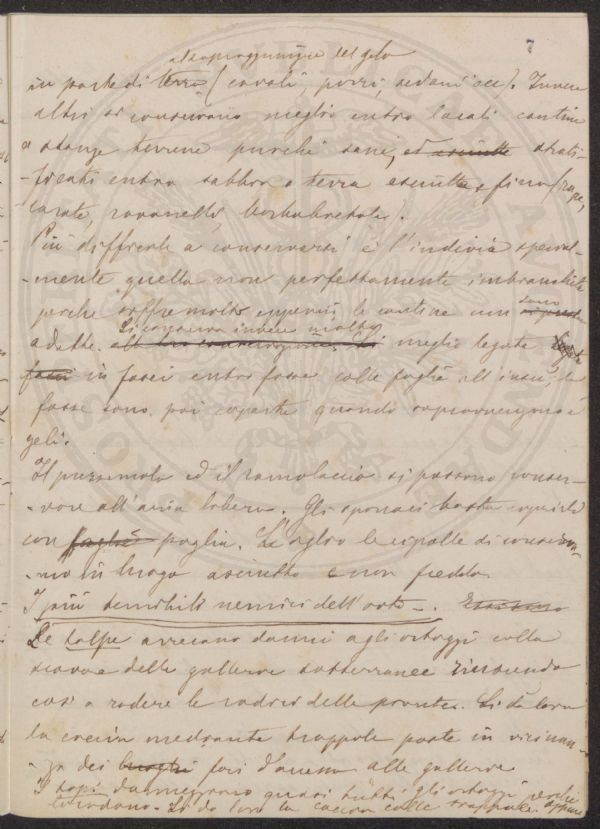 al sopraggiungere del gelo
7
in parte di terra (cavoli, porri, sedani ecc). Invece
altri si conservano meglio entro locali cantine
o stanze terrene purchè sane, ed asciutte strati-
-ficati entro sabbia o terra asciutta e fina (rape,
carote, ravanelli, barbabietole).
Più difficile a conservarsi è l'indivia special-
-mente quella non perfettamente imbianchita
perchè soffre molto eppercui le cantine non sono
adatte. Si conserva invece molto meglio legata
in fasci entro fosse colle foglie all'insù, le
fosse sono poi coperte quando sopravvengono i
geli.
Il prezzemolo ed il ramolaccio si possono conser-
-vare all'aria libera. Gli spinaci basta coprirli
con foglie paglia. L'aglio le cipolle si conserva-
-no in luogo asciutto e non freddo.
I più temibili nemici dell'orto -.
Le talpe arrecano danni agli ortaggi collo
scavare delle gallerie sotterranee riuscendo
così a rodere le radici delle piante. Si dà loro
la caccia mediante trappole poste in vicinan-
-za dei luoghi fori d'accesso alle gallerie
I topi danneggiano quasi tutti gli ortaggi perchè
li rodono. Si dà loro la caccia colle trappole.